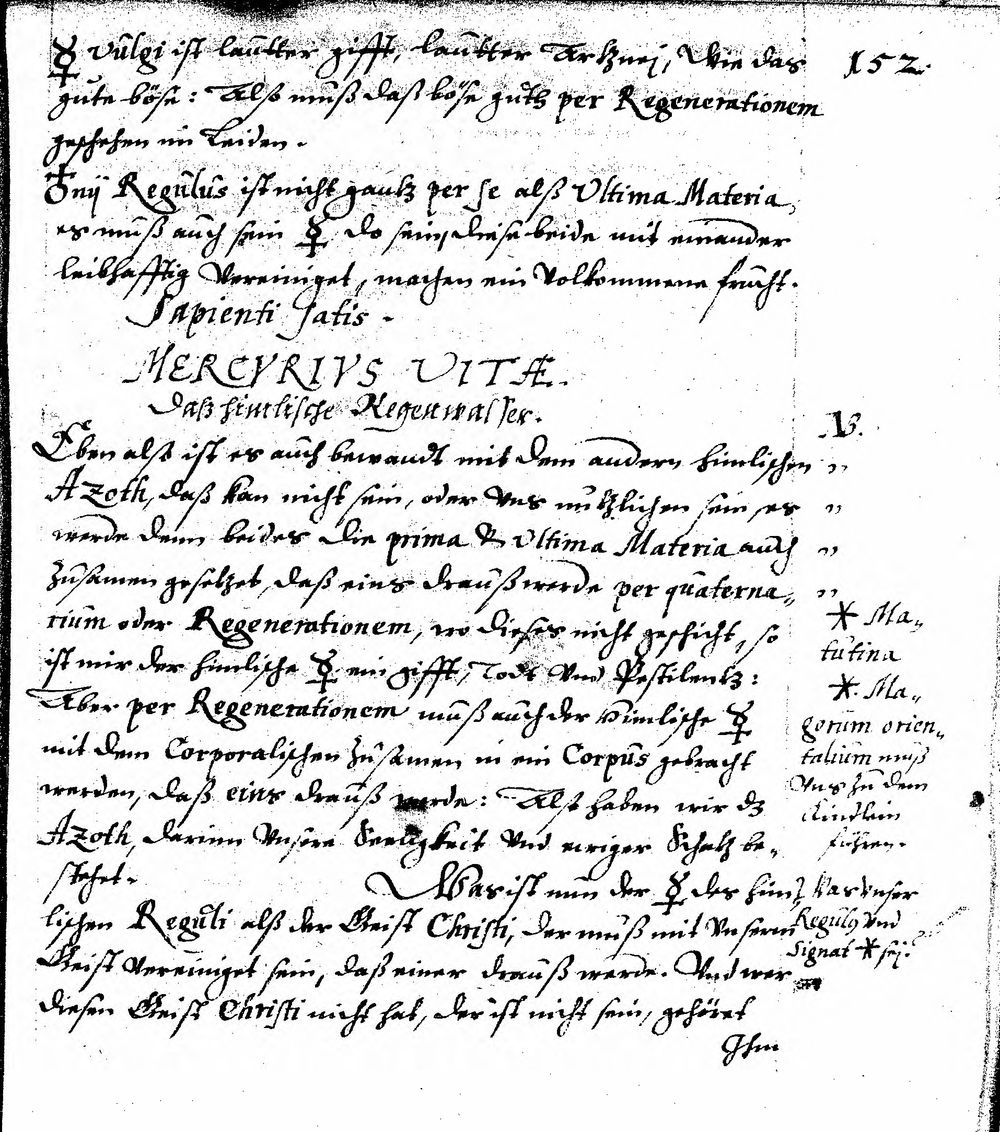 152.
☿ vulgi ist lautter gifft, lautter Artznej, Wie das
gute böse: Also muß daß böse guth per Regenerationem
geschehen im Leiden.
♁nij Regulus ist nicht gantz per se alß Ultima Materia,
es muß auch sein ☿ do sein, diese beide mit einander
leibhafftig Vereiniget, machen ein Volkommene frucht.
Sapienti satis.
MERCVRIVS VITÆ.
Daß himlische Regenwasser.
Eben alß ist es auch bewandt mit dem andern himlischen
Azoth, daß kan nicht sein, oder Uns nützlichen sein, es
werde denn beides die prima & Ultima Materia auch
zusamen gesetzet, daß eins drauß werde per quaterna„
rium oder Regenerationem, wo dieses nicht geschicht, so
ist mir der himlische ☿ ein gifft, Todt Und Pestilentz:
Aber per Regenerationem muß auch der Himlische ☿
mit dem Corporalischen zusamen in ein Corpus gebracht
werden, daß eins drauß werde: Also haben wir dz
Azoth, darinn Unsere Seeligkeit Und ewiger Schatz be„
stehet.
Was ist nun der ☿ des him„
lischen Reguli alß der Geist Christi, der muß mit Unserm
Geist Vereiniget sein, daß einer drauß werde. Und wer
diesen Geist Christi nicht hat, der ist nicht sein, gehöret
Ihm
NB.
„
„
„
„
* Ma„
tutina
*. Ma„
gorum orien„
talium muß
Uns zu dem
Kindlein
führen.
Was Unser
Regulus Und
Signat * sej.